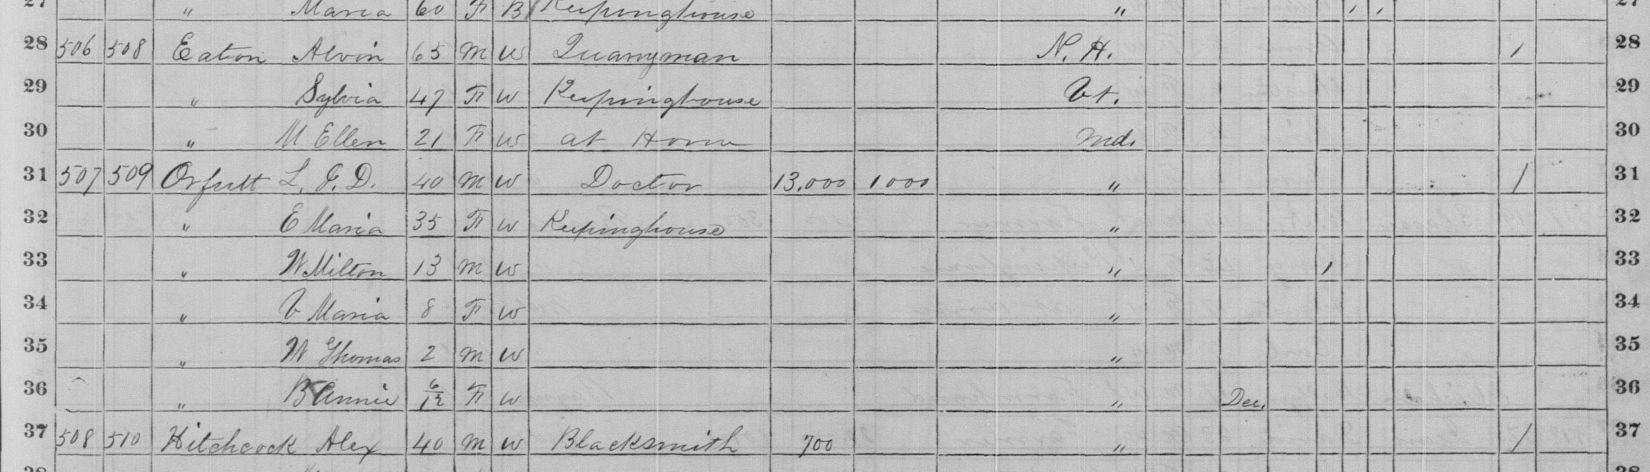 27 " Maria 60 F B Keepinghouse " ' ' 27
28 506 508 Eaton Alvin 65 M W Quarryman N. H. / 28
29 " Sylvia 47 F W Keepinghouse Vt. 29
30 " M Ellen 21 F W at Home Md. 30
31 507 509 Orfutt L. J. D. 40 M W Doctor 13,000 1000 " / 31
32 " E Maria 35 F W Keepinghouse " 32
33 " W Milton 13 M W " / 33
34 " V Maria 8 F W " 34
35 " W Thomas 2 M W " 35
36 " B Annie 6/12 F W " Dec. 36
37 508 510 Hitchcock Alex 40 M W Blacksmith 700 " / 37